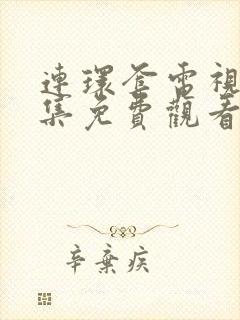 連環套電視
集免費觀看
辛棄疾